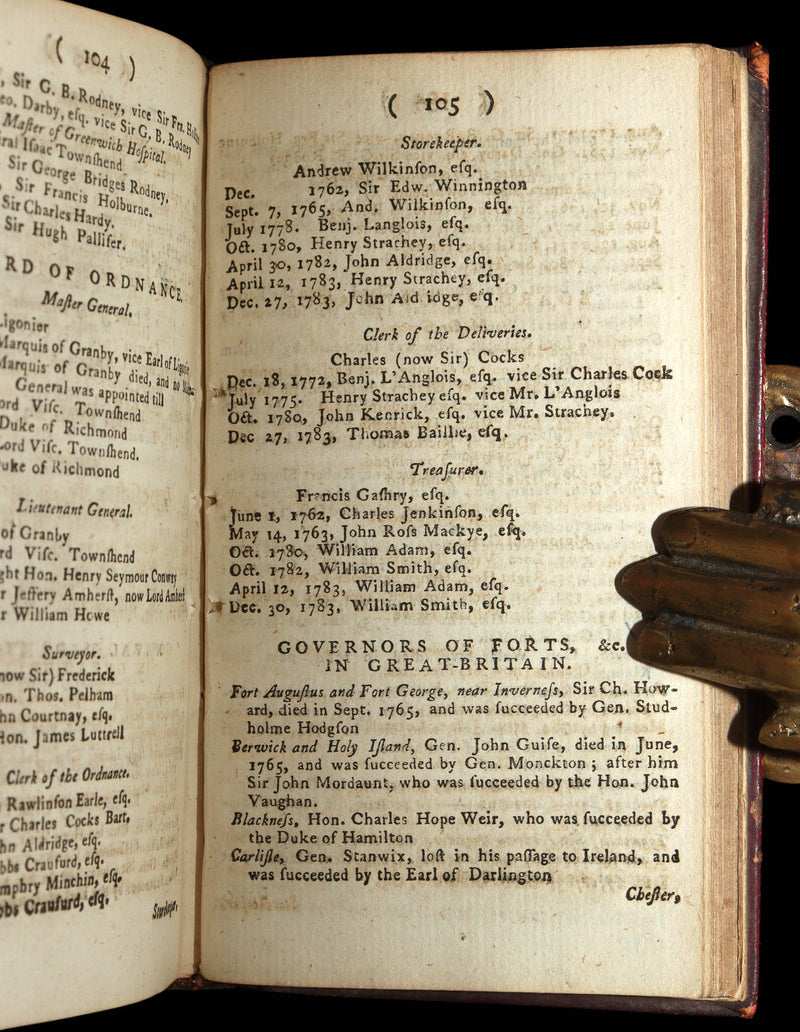 ( 104 )
Sir G. B. Rodney, vice Sir Fra.
Darby, esq. vice Sir G. B. Rodney
Maſter of Greenwich Hoſpital.
Iſaac Townſhend
Sir George Bridges Rodney,
Sir Francis Holburne.
Sir Charles Hardy.
Sir Hugh Palliſer.
RD OF ORDNANCE.
Maſter General.
igonier
Marquis of Granby, vice Earl of
Marquis of Granby died, and no
General was appointed till
ord Viſc. Townſhend
Duke of Richmond
ord Viſc. Townſhend.
uke of Richmond
Lieutenant General.
of Granby
rd Viſc. Townſhend
ght Hon. Henry Seymour Conway
r Jeffery Amherſt, now Lord Amherſt
r William Howe
Surveyor.
now Sir) Frederick
n. Thos. Pelham
hn Courtnay, eſq.
ion. James Luttrell
Clerk of the Ordnance.
Rawlinſon Earle, eſq.
r Charles Cocks Bart.
hn Aldridge, eſq.
bbs Craufurd, eſq.
mphry Minchin, eſq.
bbs Craufurd, eſq.
( 105 )
Storekeeper.
Andrew Wilkinſon, eſq.
Dec. 1762, Sir Edw. Winnington
Sept. 7, 1765, And. Wilkinſon, eſq.
July 1778. Benj. Langlois, eſq.
Oct. 1780, Henry Strachey, eſq.
April 30, 1782, John Aldridge, eſq.
April 12, 1783, Henry Strachey, eſq.
Dec. 27, 1783, John Aldridge, eſq.
Clerk of the Deliveries.
Charles (now Sir) Cocks
Dec. 18, 1772, Benj. L'Anglois, eſq. vice Sir Charles Cock
July 1775. Henry Strachey eſq. vice Mr. L'Anglois
Oct. 1780, John Kenrick, eſq. vice Mr. Strachey.
Dec 27, 1783, Thomas Baillie, eſq.
Treaſurer.
Francis Gaſhry, eſq.
June 1, 1762, Charles Jenkinſon, eſq.
May 14, 1763, John Roſs Mackye, eſq.
Oct. 1780, William Adam, eſq.
Oct. 1782, William Smith, eſq.
April 12, 1783, William Adam, eſq.
Dec. 30, 1783, William Smith, eſq.
GOVERNORS OF FORTS, &c.
IN GREAT-BRITAIN.
Fort Auguſtus and Fort George, near Inverneſs, Sir Ch. How-
ard, died in Sept. 1765, and was ſucceeded by Gen. Stud-
holme Hodgſon
Berwick and Holy Iſland, Gen. John Guiſe, died in June,
1765, and was ſucceeded by Gen. Monckton ; after him
Sir John Mordaunt, who was ſucceeded by the Hon. John
Vaughan.
Blackneſs, Hon. Charles Hope Weir, who was ſucceeded by
the Duke of Hamilton
Carliſle, Gen. Stanwix, loſt in his paſſage to Ireland, and
was ſucceeded by the Earl of Darlington
Cheſter,